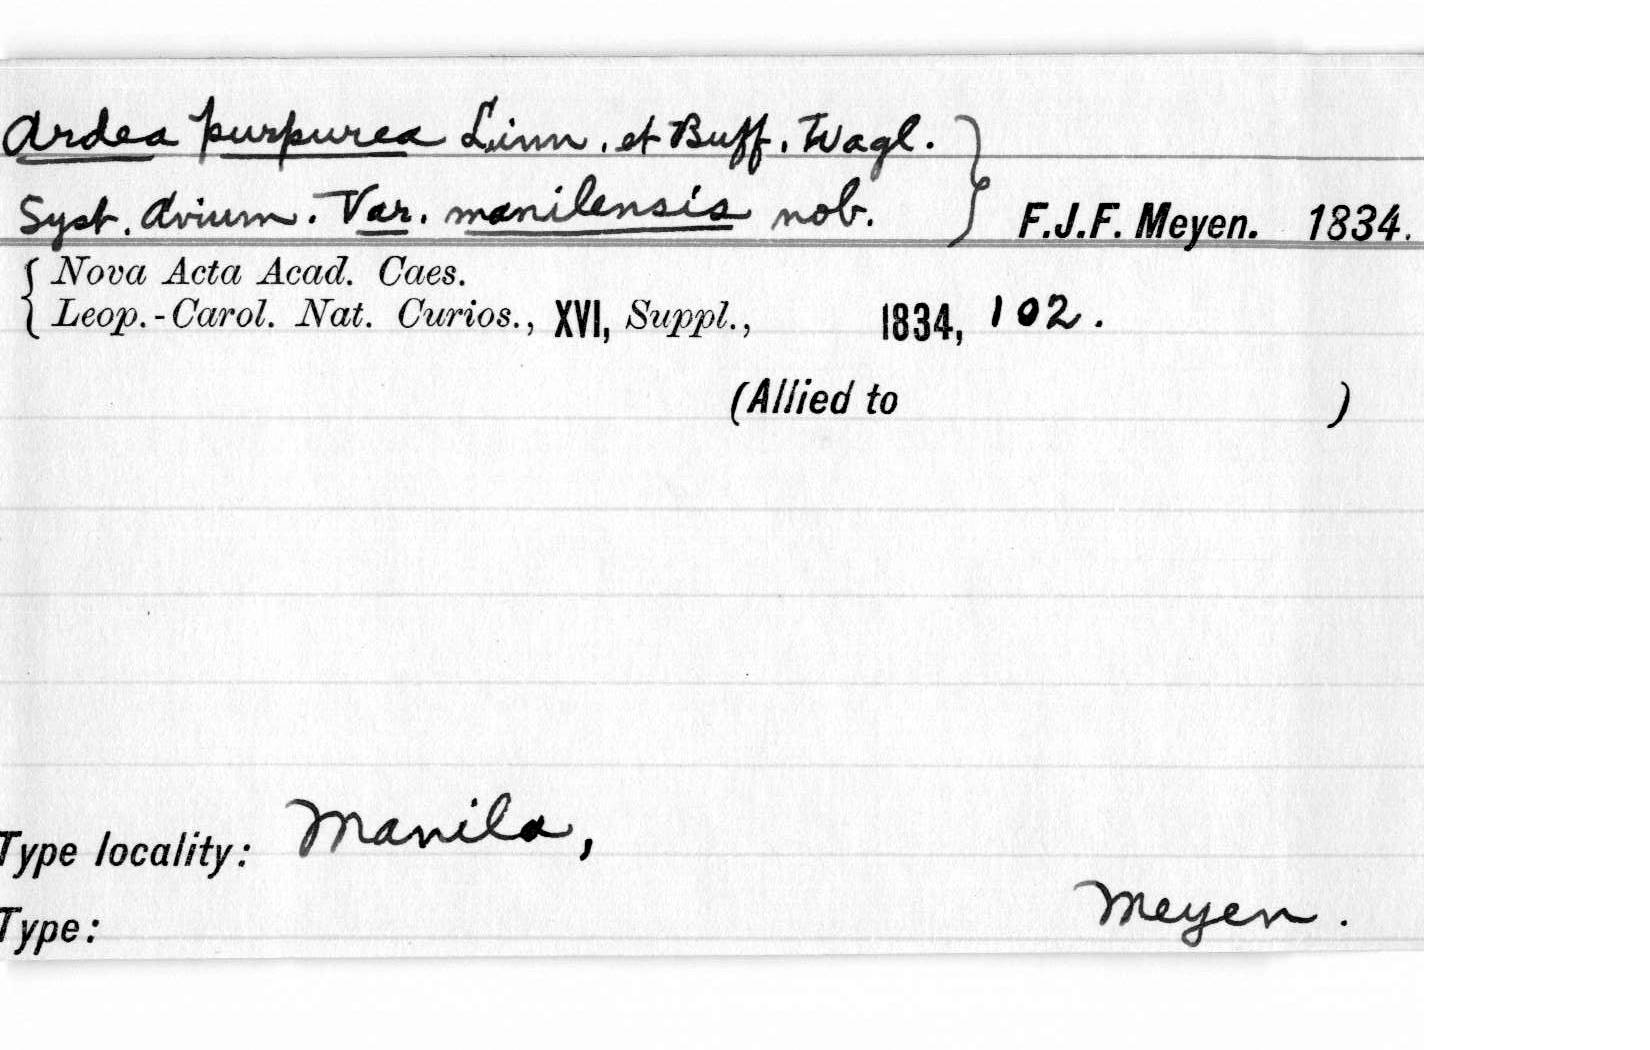 Ardea purpurea Linn. et Buff. Wagl.
Syst. Avium. Var. manilensis nob. } F.J.F. Meyen. 1834.
{ Nova Acta Acad. Caes.
Leop.-Carol. Nat. Curios., XVI, Suppl., 1834, 102.
(Allied to )
Type locality: Manila,
Meyen.
Type: